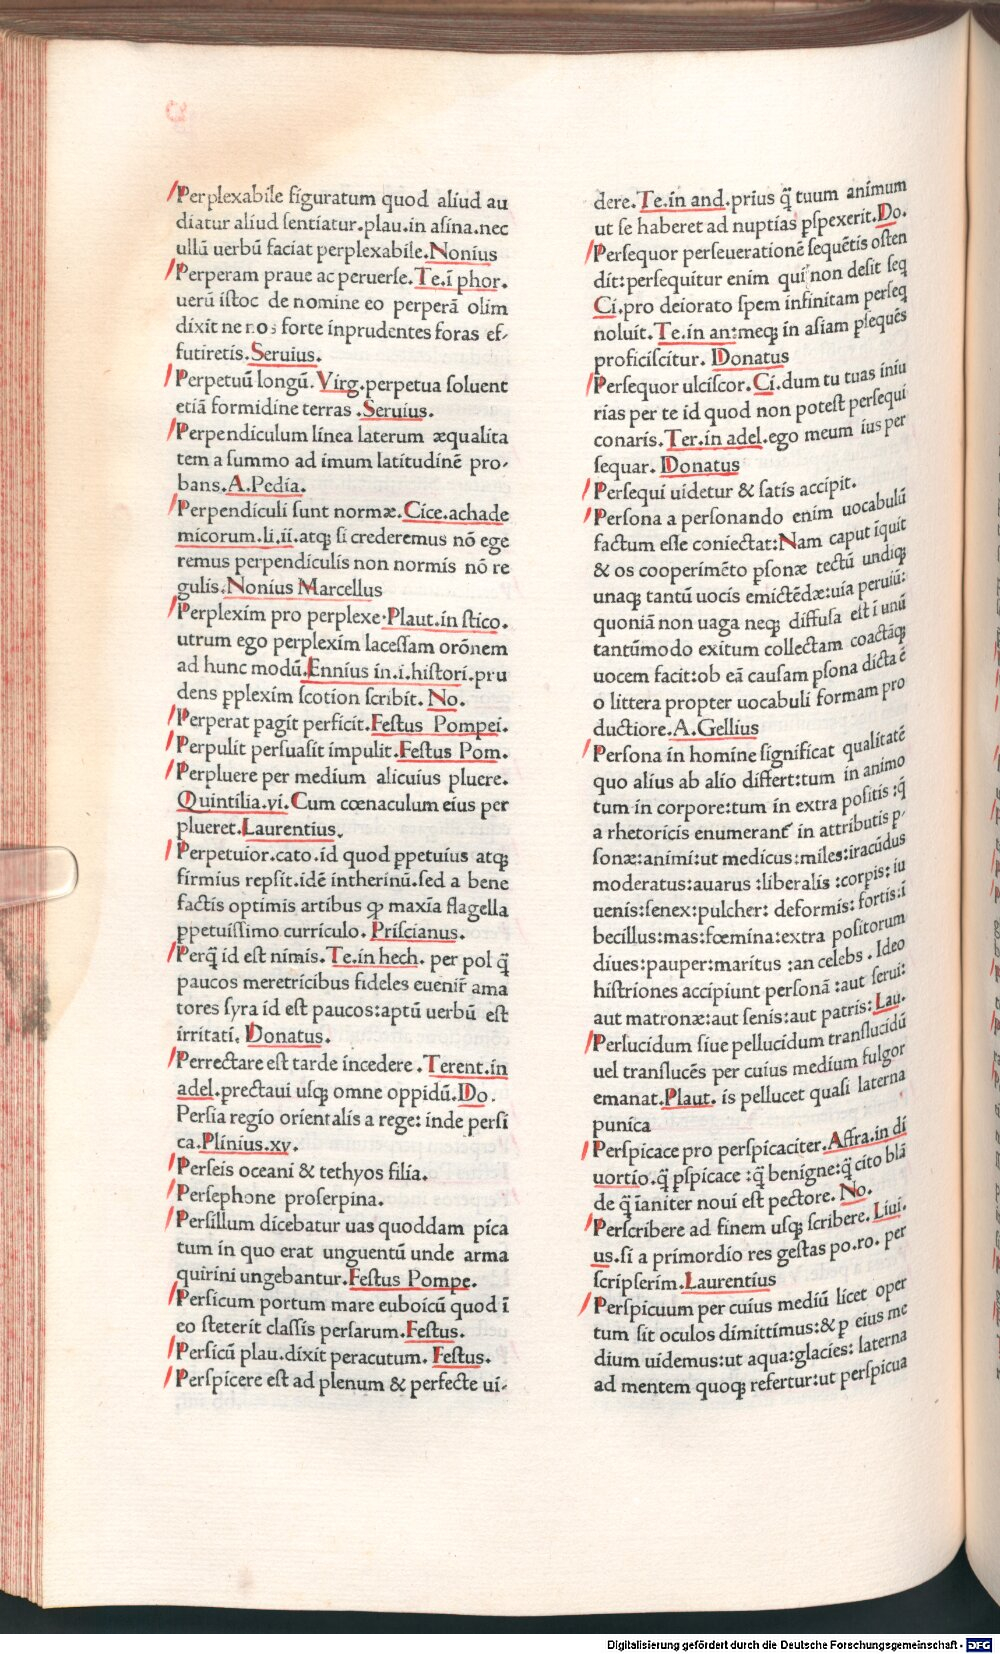 Perplexabile figuratum quod aliud au
diatur aliud sentiatur.plau.in asina.nec
ullũ uerbũ faciat perplexabile.Nonius
Perperam praue ac peruerse.Te.ĩ phor.
uerũ istoc de nomine eo perperã olim
dixit ne nos forte inprudentes foras ef-
futiretis.Seruius.
Perpetuũ longũ.Virg.perpetua soluent
etiã formidine terras.Seruius.
Perpendiculum linea laterum æqualita
tem a summo ad imum latitudinẽ pro-
bans.A.Pedia.
Perpendiculi sunt normæ.Cice.achade
micorum.li.ii.atqꝫ si crederemus nõ ege
remus perpendiculis non normis nõ re
gulis.Nonius Marcellus
Perplexim pro perplexe.Plaut.in stico.
utrum ego perplexim lacessam orõnem
ad hunc modũ.Ennius in.i.histori.pru
dens pplexim scotion scribit. No.
Perperat pagit perficit.Festus Pompei.
Perpulit persuasit impulit.Festus Pom.
Perpluere per medium alicuius pluere.
Quintilia.vi.Cum cœnaculum eius per
plueret.Laurentius.
Perpetuior.cato.id quod ꝑpetuius atqꝫ
firmius repsit.idẽ intherinũ.sed a bene
factis optimis artibus qꝫ maxĩa flagella
ꝑpetuissimo curriculo. Priscianus.
Perq̃ id est nimis.Te.in hech. per pol q̃
paucos meretricibus fideles euenir̃ ama
tores syra id est paucos:aptũ uerbũ est
irritati. Donatus.
Perrectare est tarde incedere.Terent.in
adel.prectaui usqꝫ omne oppidũ.Do.
Persia regio orientalis a rege: inde persi
ca.Plinius.xv.
Perseis oceani & tethyos filia.
Persephone proserpina.
Persillum dicebatur uas quoddam pica
tum in quo erat unguentũ unde arma
quirini ungebantur.Festus Pompe.
Persicum portum mare euboicũ quod ĩ
eo steterit classis persarum.Festus.
Persicũ plau.dixit peracutum. Festus.
Perspicere est ad plenum & perfecte ui-
dere.Te.in and.prius q̃ tuum animum
ut se haberet ad nuptias pspexerit.Do.
Persequor perseuerationẽ sequẽtis osten
dit:persequitur enim qui non desit seq
Ci.pro deiorato spem infinitam perseq
noluit.Te.in an:meqꝫ in asiam psequẽs
proficiscitur. Donatus
Persequor ulciscor. Ci.dum tu tuas iniu
rias per te id quod non potest persequi
conaris.Ter.in adel.ego meum ius per
sequar. Donatus
Persequi uidetur & satis accipit.
Persona a personando enim uocabulũ
factum esse coniectat:Nam caput ĩquit
& os cooperimẽto psonæ tectũ undiqꝫ
unaqꝫ tantũ uocis emictẽdæ:uia peruiũ:
quoniã non uaga neqꝫ diffusa est ĩ unũ
tantũmodo exitum collectam coactãqꝫ
uocem facit:ob eã causam psona dicta ẽ
o littera propter uocabuli formam pro
ductiore.A.Gellius
Persona in homine significat qualitatẽ
quo alius ab alio differt:tum in animo
tum in corpore:tum in extra positis:q̃
a rhetoricis enumerant̃ in attributis p-
sonæ:animi:ut medicus:miles:iracũdus
moderatus:auarus:liberalis:corpis:iu
uenis:senex:pulcher: deformis: fortis:ĩ
becillus:mas:fœmina:extra positorum
diues:pauper:maritus:an celebs. Ideo
histriones accipiunt personã:aut serui:
aut matronæ:aut senis:aut patris:Lau.
Perlucidum siue pellucidum translucidũ
uel translucẽs per cuius medium fulgor
emanat.Plaut. is pellucet quasi laterna
punica
Perspicace pro perspicaciter.Affra.in di
uortio.q̃ pspicace:q̃ benigne:q̃ cito blã
de q̃ ĩaniter noui est pectore. No.
Perscribere ad finem usqꝫ scribere.Liui.
us.si a primordio res gestas po.ro. per
scripserim.Laurentius
Perspicuum per cuius mediũ licet oper
tum sit oculos dimittimus:& p eius me
dium uidemus:ut aqua:glacies: laterna
ad mentem quoqꝫ refertur:ut perspicua
Digitalisierung gefördert durch die Deutsche Forschungsgemeinschaft - DFG